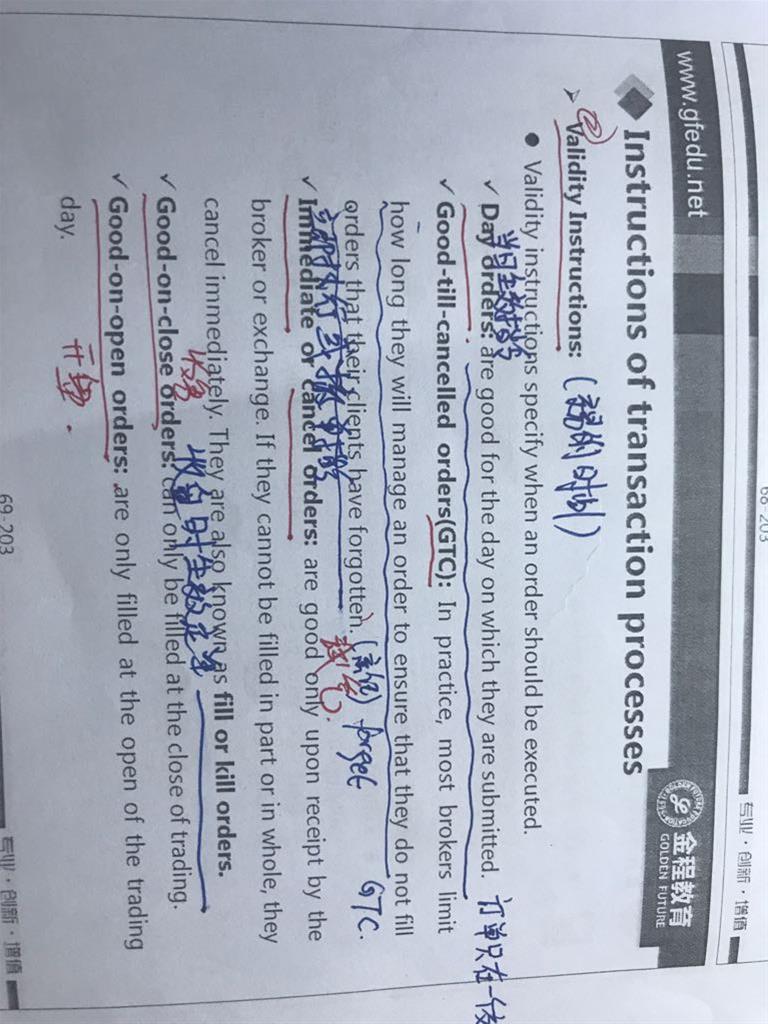 68-203
专业·创新·增值
www.gfedu.net
金程教育
GOLDEN FUTURE
Instructions of transaction processes
➢ ② Validity Instructions: (
● Validity instructions specify when an order should be executed.
当日生效
✓ Day orders: are good for the day on which they are submitted. 订单只在一
✓ Good-till-cancelled orders(GTC): In practice, most brokers limit
how long they will manage an order to ensure that they do not fill GTC.
orders that their clients have forgotten. forget
✓ Immediate or cancel orders: are good only upon receipt by the
broker or exchange. If they cannot be filled in part or in whole, they
cancel immediately. They are also known as fill or kill orders.
收盘时生效
✓ Good-on-close orders: can only be filled at the close of trading.
✓ Good-on-open orders: are only filled at the open of the trading
day. 开盘.
69-203
专业·创新·增值